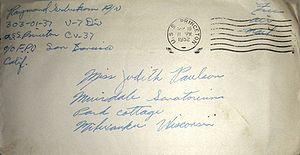 Raymond A/N
303-01-37 U-7 Div
USS Princeton CV-37
% F.P.O San Francisco
Calif.
U.S.S. PRINCETON
11 AM
1952
Free
air
mail
Miss Judith Paulson
Muirdale Sanatorium
Park Cottage
Milwaukee Wisconsin